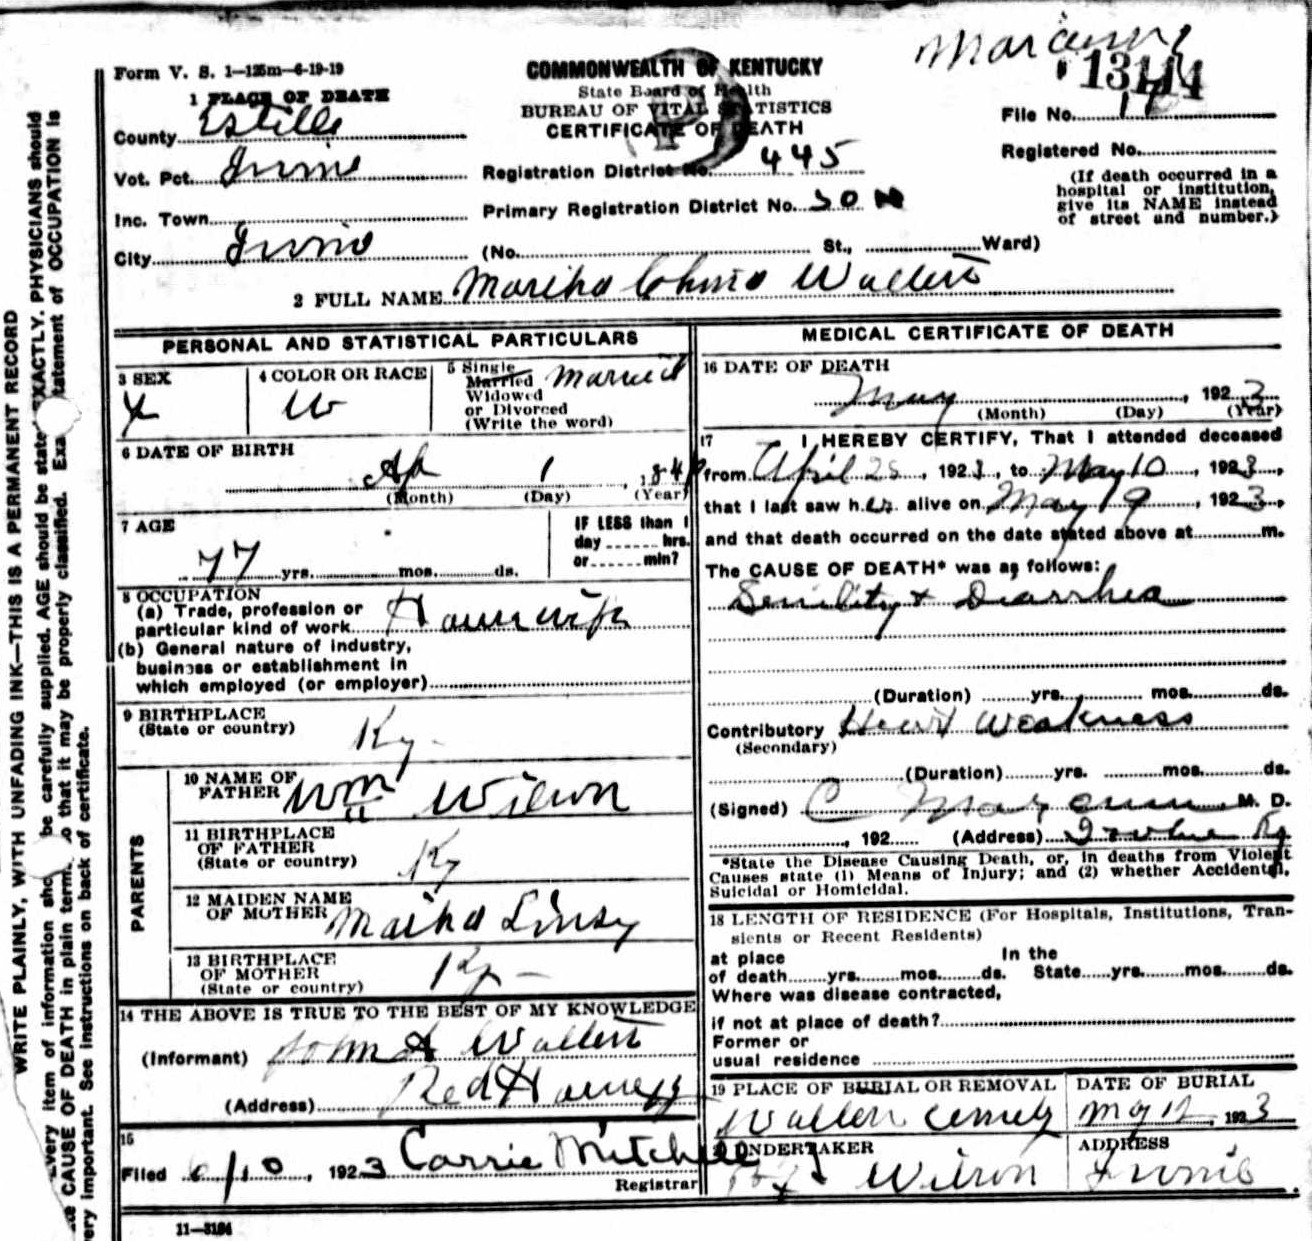 Form V. S. 1—125m—6-19-19
COMMONWEALTH OF KENTUCKY
State Board of Health
BUREAU OF VITAL STATISTICS
CERTIFICATE OF DEATH
13114
1 PLACE OF DEATH
County Estill
Vot. Pct. Irvine
Inc. Town
City Irvine
Registration District No. 445
Primary Registration District No.
(No. St., Ward)
File No.
Registered No.
(If death occurred in a
hospital or institution,
give its NAME instead
of street and number.)
2 FULL NAME Wallen
PERSONAL AND STATISTICAL PARTICULARS
3 SEX
4 COLOR OR RACE W
5 Single
Married
Widowed
or Divorced
(Write the word)
Married
6 DATE OF BIRTH
Ap 1, 184
(Month) (Day) (Year)
7 AGE
77 yrs. mos. ds.
IF LESS than 1
day hrs.
or min?
8 OCCUPATION
(a) Trade, profession or
particular kind of work Housewife
(b) General nature of industry,
business or establishment in
which employed (or employer)
9 BIRTHPLACE
(State or country) Ky.
PARENTS
10 NAME OF
FATHER Wm Wilson
11 BIRTHPLACE
OF FATHER
(State or country) Ky
12 MAIDEN NAME
OF MOTHER
13 BIRTHPLACE
OF MOTHER
(State or country) Ky-
14 THE ABOVE IS TRUE TO THE BEST OF MY KNOWLEDGE
(Informant) John A Wallen
(Address) Red
15
Filed 6/10, 1923 Carrie Mitchell
Registrar
11—3184
MEDICAL CERTIFICATE OF DEATH
16 DATE OF DEATH
May, 1923
(Month) (Day) (Year)
17 I HEREBY CERTIFY, That I attended deceased
from April 25, 1923, to May 10, 1923,
that I last saw her alive on May 9, 1923,
and that death occurred on the date stated above at m.
The CAUSE OF DEATH* was as follows:
Senility + Diarrhea
(Duration) yrs. mos. ds.
Contributory Heart Weakness
(Secondary)
(Duration) yrs. mos. ds.
(Signed) C M. D.
, 192 (Address) Irvine Ky
*State the Disease Causing Death, or, in deaths from Violent
Causes state (1) Means of Injury; and (2) whether Accidental,
Suicidal or Homicidal.
18 LENGTH OF RESIDENCE (For Hospitals, Institutions, Tran-
sients or Recent Residents)
at place In the
of death yrs. mos. ds. State yrs. mos. ds.
Where was disease contracted,
if not at place of death?
Former or
usual residence
19 PLACE OF BURIAL OR REMOVAL
DATE OF BURIAL
Wallen Cemety
May 12, 1923
UNDERTAKER
ADDRESS
Wilson
Irvine
WRITE PLAINLY, WITH UNFADING INK—THIS IS A PERMANENT RECORD
be carefully supplied. AGE should be state EXACTLY. PHYSICIANS should
CAUSE OF DEATH in plain term so that it may be properly classified. statement of OCCUPATION is
important. See instructions on back of certificate.